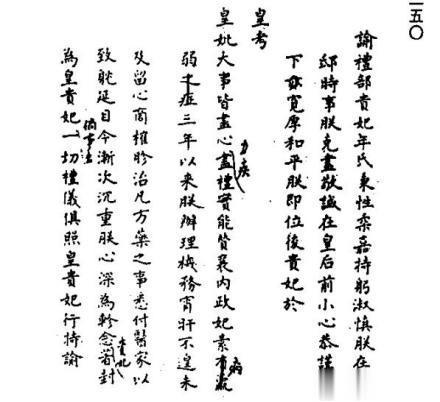 一五〇
諭禮部貴妃年氏秉性柔嘉持躬淑慎朕在
邸時事朕克盡敬誠在皇后前小心恭謹
下亦寬厚和平朕即位後貴妃於
皇考
皇妣大事皆盡心力疾盡禮實能贊襄內政妃素病有羸
弱之症三年以來朕辦理機務宵旰不遑未
及留心商榷胗治凡方藥之事悉付醫家以
致躭延目今漸次沉重朕心深為軫念著封
為皇貴妃倘事出一切禮儀俱照皇貴妃行特諭